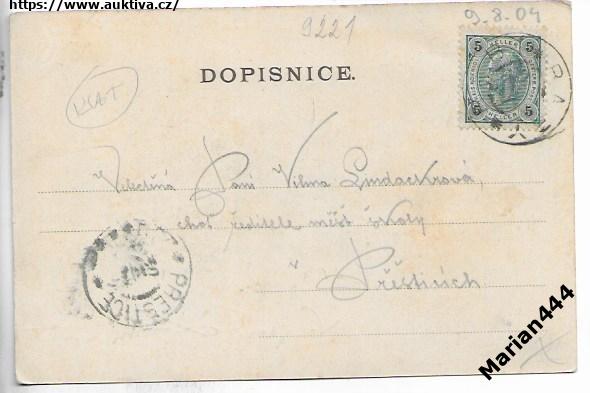 https://www.auktiva.cz/
9221
9.8.04
DOPISNICE.
5 HELLER 5
5 HELLER 5
KLAT
Velectěná Paní Vilma Lindackrová,
choť ředitele měšť školy
v Přešticích
PRESTICE
Marian444